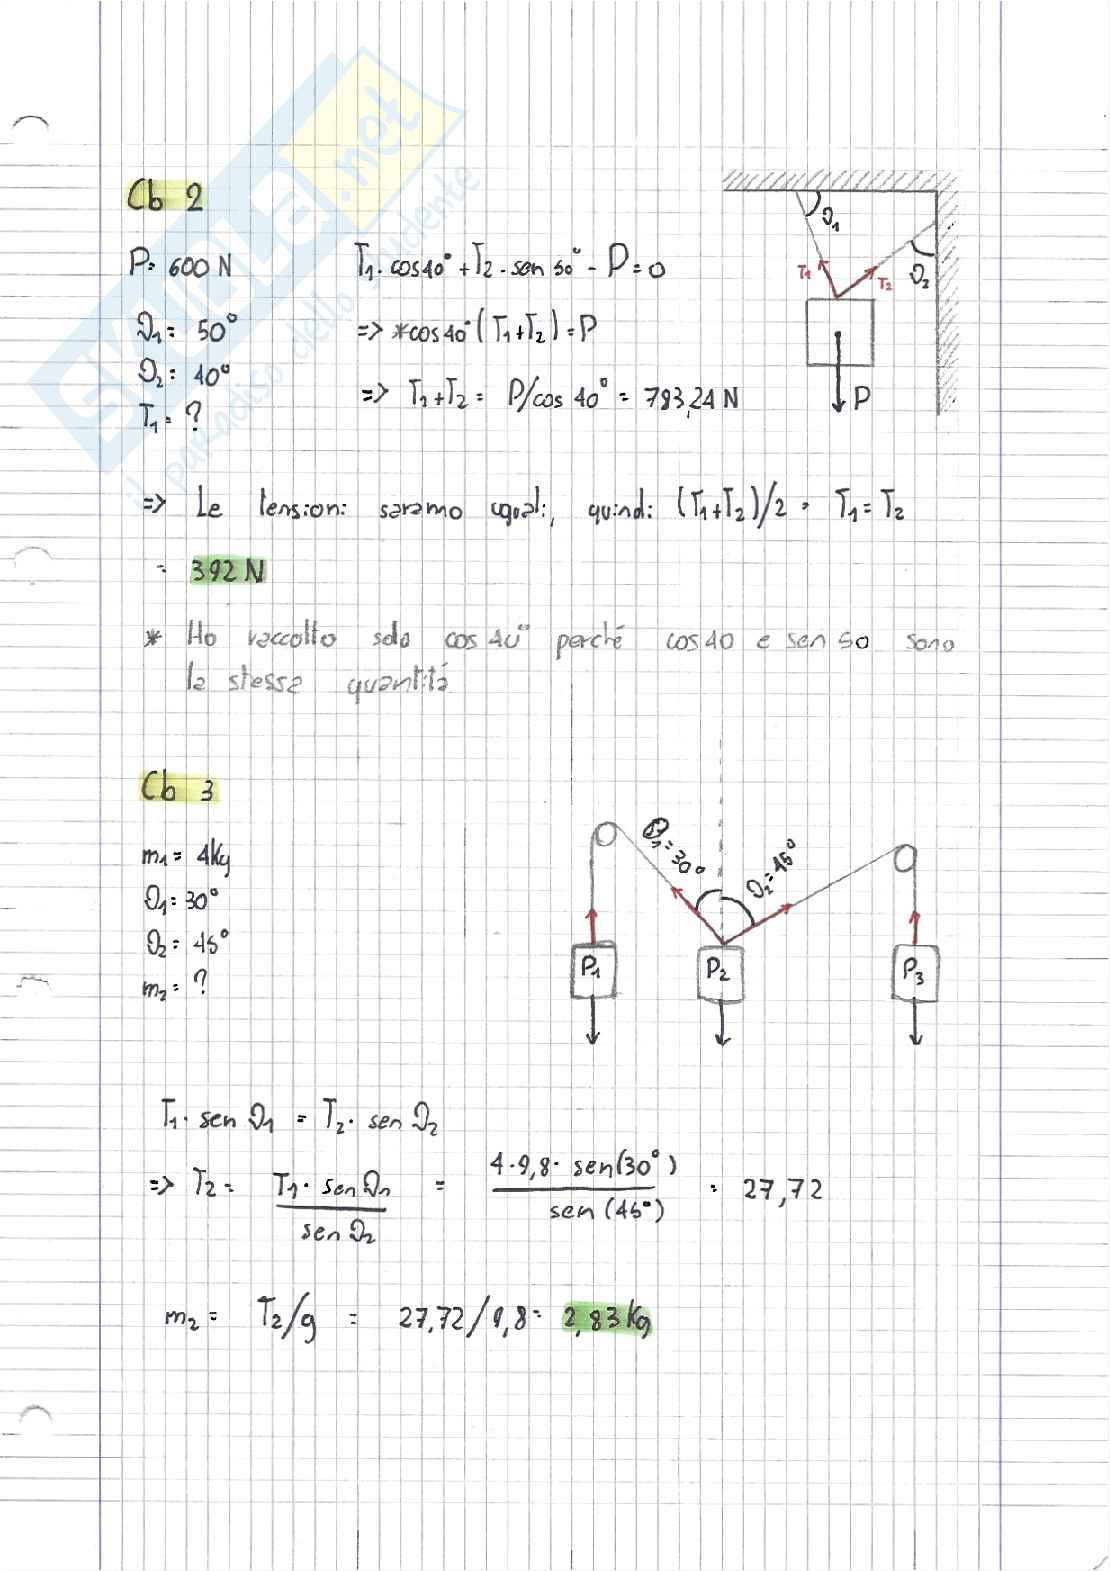 SKUOLA.net
il paradiso dello studente
Cb 2
P = 600 N
T₁ · cos 40° + T₂ · sen 50° - P = 0
ϑ₁ = 50°
=> *cos 40° (T₁+T₂) = P
ϑ₂ = 40°
=> T₁+T₂ = P/cos 40° = 783,24 N
T₁ = ?
ϑ₁
T₁
T₂
ϑ₂
P
=> Le tensioni saranno uguali, quindi (T₁+T₂)/2 = T₁ = T₂
= 392 N
* Ho raccolto solo cos 40° perché cos 40 e sen 50 sono
la stessa quantità
Cb 3
m₁ = 4Kg
ϑ₁ = 30°
ϑ₂ = 45°
m₂ = ?
ϑ₁ = 30°
ϑ₂ = 45°
P₁
P₂
P₃
T₁ · sen ϑ₁ = T₂ · sen ϑ₂
=> T₂ = T₁ · sen ϑ₁ / sen ϑ₂ = 4 · 9,8 · sen(30°) / sen(45°) = 27,72
m₂ = T₂/g = 27,72/9,8 = 2,83 Kg